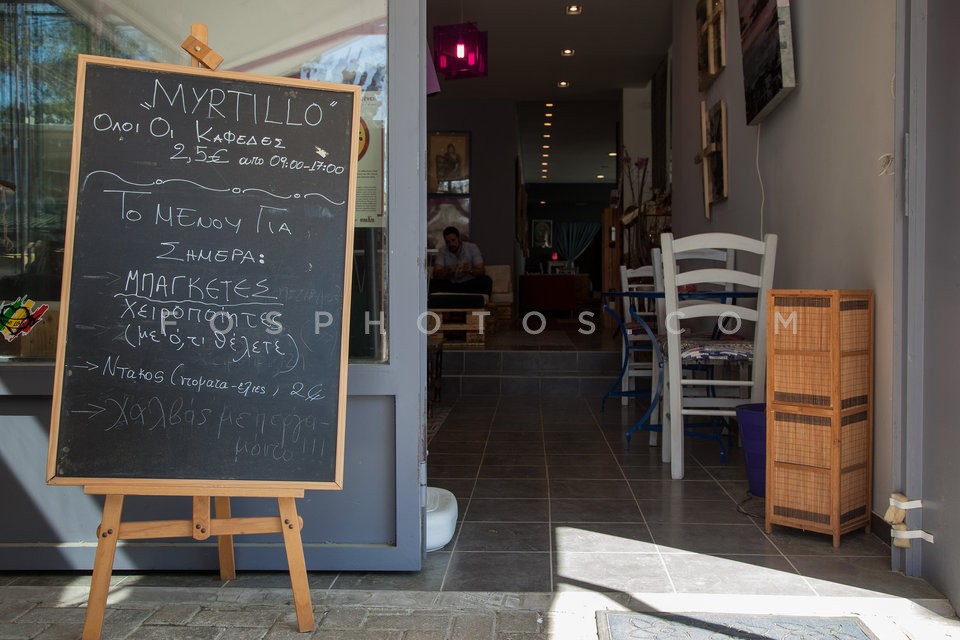 „MYRTILLO"
Ολοι Οι Καφεδες
2,5€ απο 09:00-17:00
Το Μενου Για
Σημερα:
ΜΠΑΓΚΕΤΕΣ
Χειροποίητες
(με ό,τι θέλετε)
→ Ντακος (ντοματα-ελιες, 2€
→ Χαλβάς με περγα-
μόντο !!!
FOSPHOTOS.COM